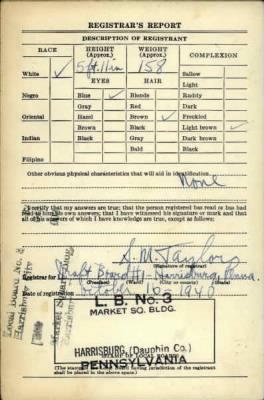 REGISTRAR'S REPORT
DESCRIPTION OF REGISTRANT
RACE HEIGHT (Approx.) WEIGHT (Approx.) COMPLEXION
White ✓ 5 ft. 11 in 158 Sallow
EYES HAIR Light
Negro Blue ✓ Blonde Ruddy
Gray Red Dark
Oriental Hazel Brown ✓ Freckled
Brown Black Light brown ✓
Indian Black Gray Dark brown
Bald Black
Filipino
Other obvious physical characteristics that will aid in identification
None
I certify that my answers are true; that the person registered has read or has had
read to him his own answers; that I have witnessed his signature or mark and that
all of his answers of which I have knowledge are true, except as follows:
S. M. Taylor
(Signature of registrar)
Registrar for Draft Board #1 - Harrisburg, Penna.
(Precinct) (Ward) (City or county) (State)
Date of registration October 16 - 1940
Local Board No. 3
Harrisburg City
Market Square Bldg.
L. B. No. 3
MARKET SQ. BLDG.
HARRISBURG, (Dauphin Co.)
(STAMP OF LOCAL BOARD)
PENNSYLVANIA
(The stamp of the local board having jurisdiction of the registrant
shall be placed in the above space.)